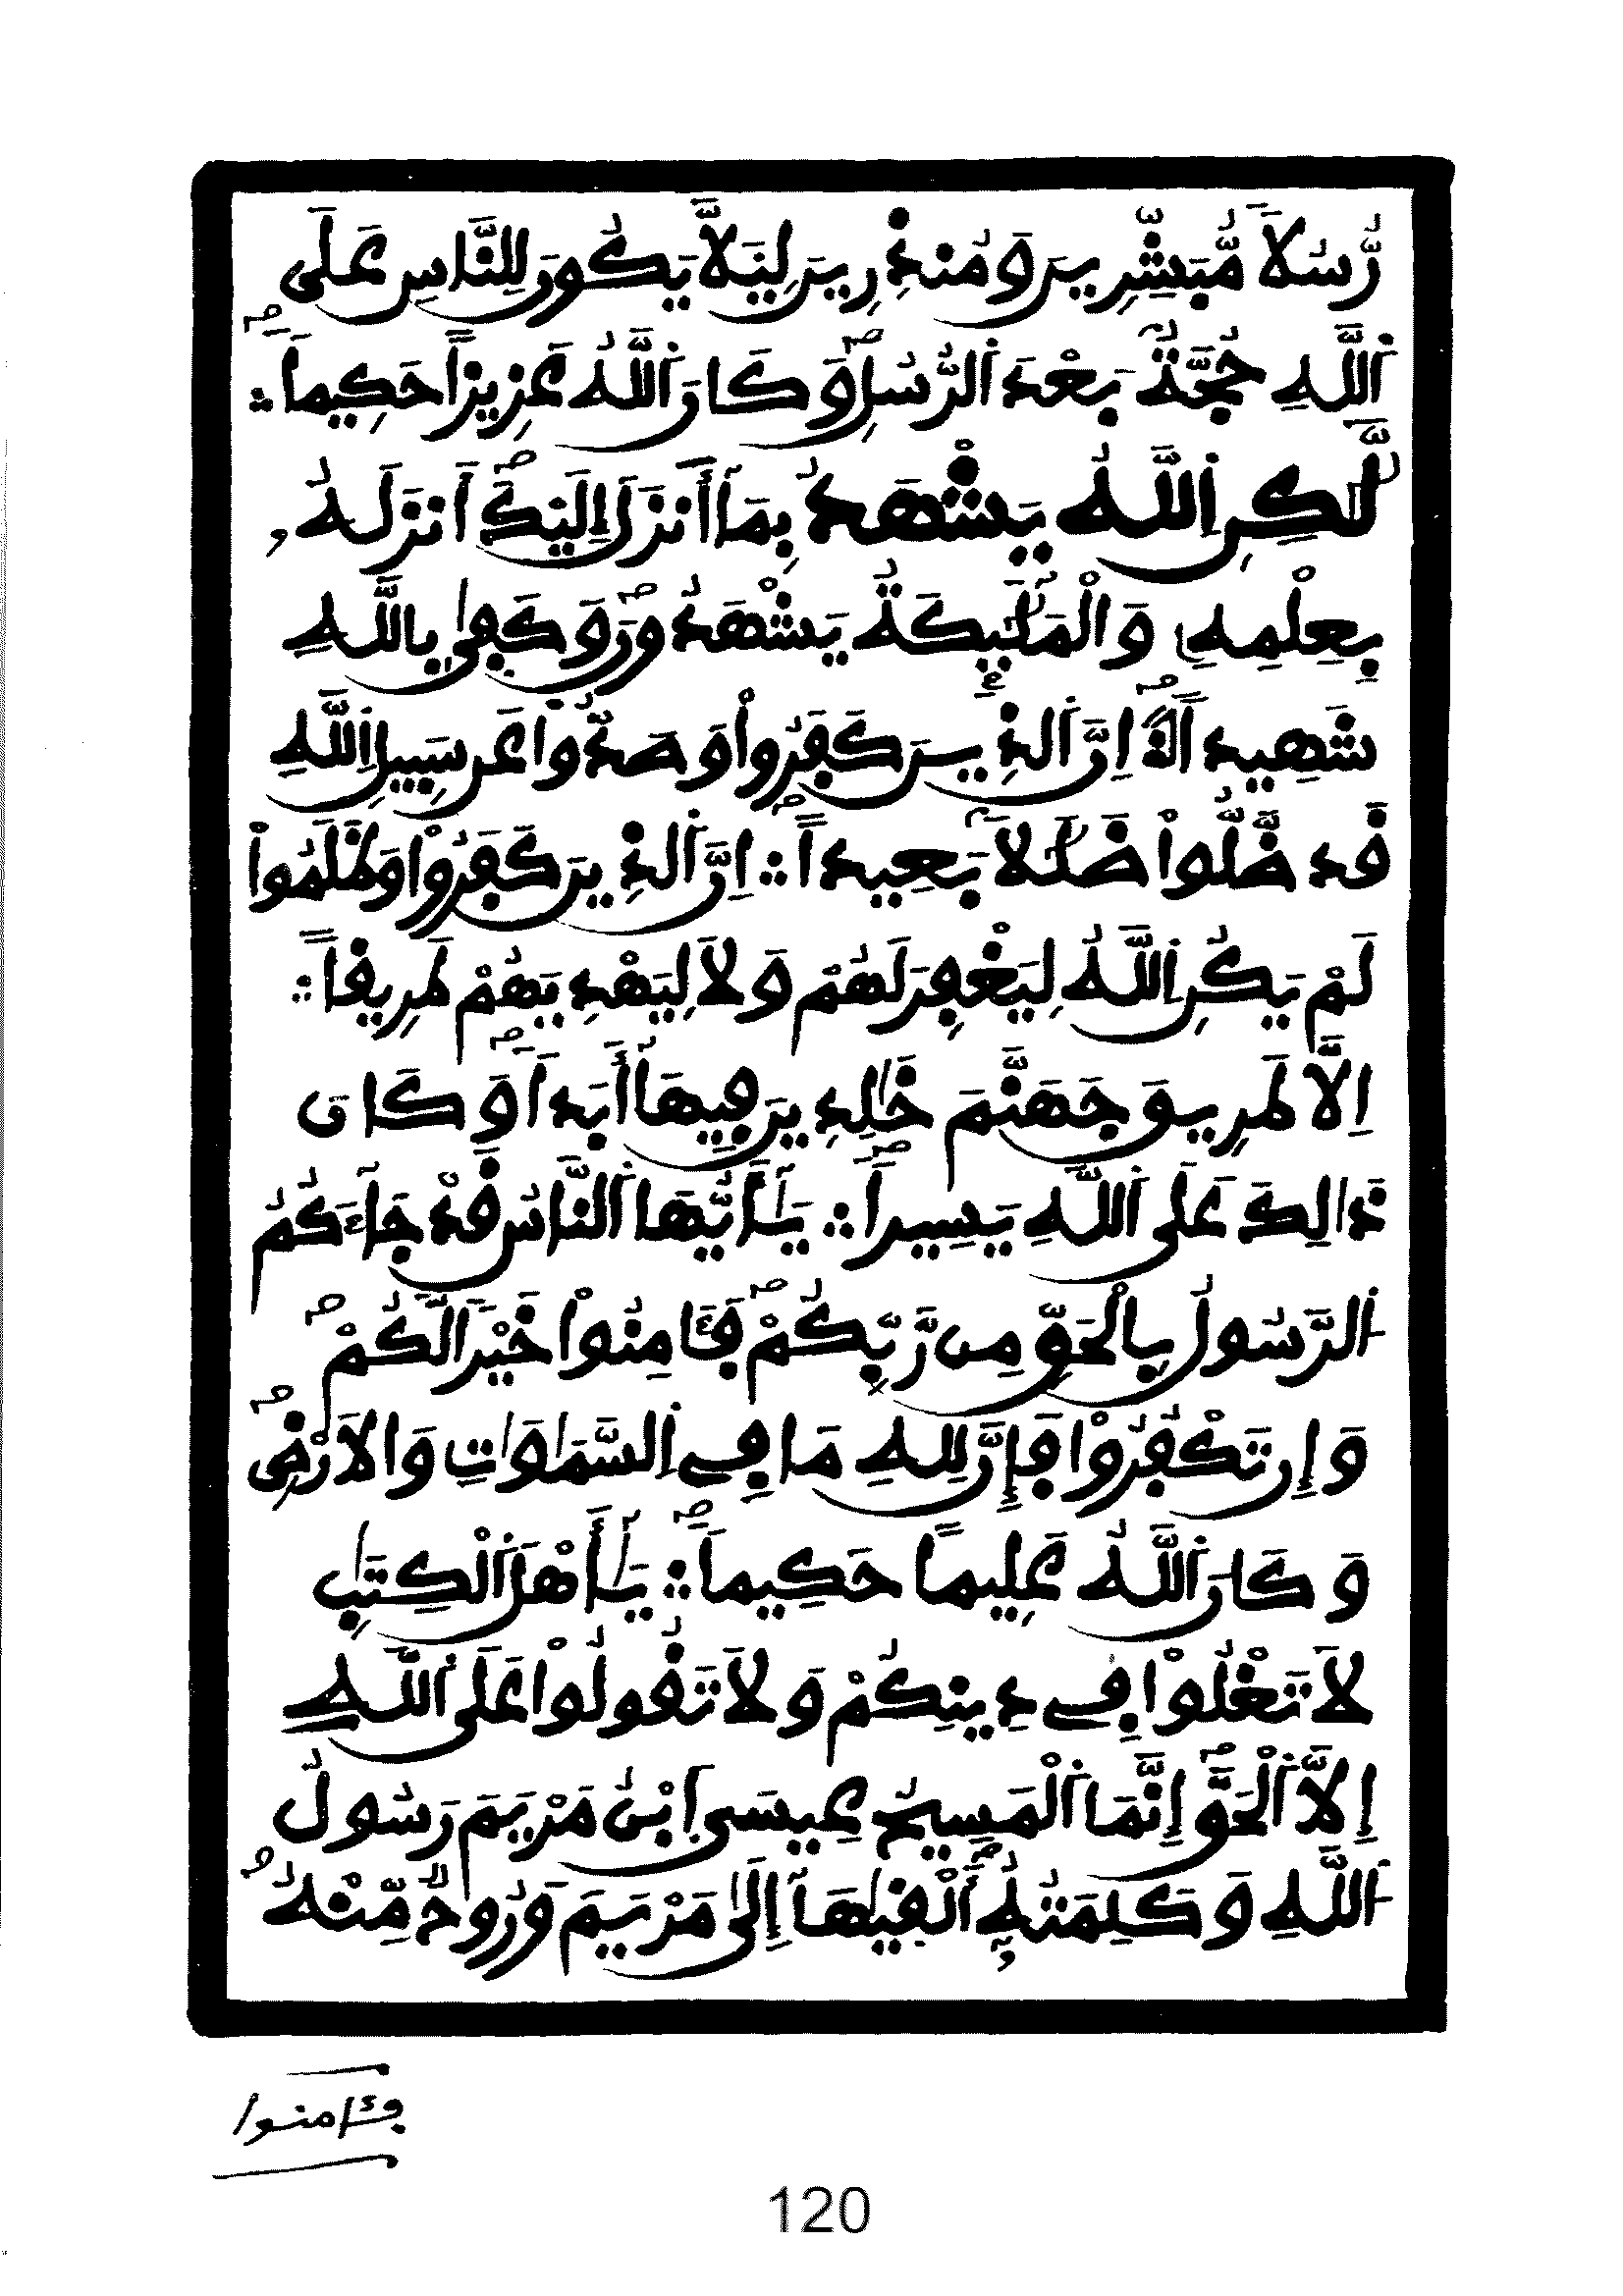 رُّسُلاَ مُّبَشِّرِينَ وَمُنذِرِينَ لِيَلاَّ يَكُونَ لِلنَّاسِ عَلَى
اَ۬للَّهِ حُجَّةُۢ بَعْدَ اَ۬لرُّسُلِ وَكَانَ اَ۬للَّهُ عَزِيزاً حَكِيماً ۛ
لَّٰكِنِ اِ۬للَّهُ يَشْهَدُ بِمَا أَنزَلَ إِلَيْكَ أَنزَلَهُۥ
بِعِلْمِهِۦ وَالْمَلَٰٓئِكَةُ يَشْهَدُونَ وَكَفِىٰ بِاللَّهِ
شَهِيداً اِنَّ اَ۬لذِينَ كَفَرُواْ وَصَدُّواْ عَن سَبِيلِ اِ۬للَّهِ
فَد ضَّلُّواْ ضَلَٰلاَۢ بَعِيداً ۛ اِنَّ اَ۬لذِينَ كَفَرُواْ وَظَلَمُواْ
لَمْ يَكُنِ اِ۬للَّهُ لِيَغْفِرَ لَهُمْ وَلاَ لِيَهْدِيَهُمْ طَرِيفاً ۛ
اِلاَّ طَرِيقَ جَهَنَّمَ خَٰلِدِينَ فِيهَا أَبَداً وَكَانَ
ذَٰلِكَ عَلَى اَ۬للَّهِ يَسِيراً ۛ يَٰأَيُّهَا اَ۬لنَّاسُ فَدْ جَآءَكُمُ
اُ۬لرَّسُولُ بِالْحَقِّ مِن رَّبِّكُمْ فَـَٔامِنُواْ خَيْراً لَّكُمْ
وَإِن تَكْفُرُواْ فَإِنَّ لِلهِ مَا فِے اِ۬لسَّمَٰوَٰتِ وَالاَرْضِ
وَكَانَ اَ۬للَّهُ عَلِيماً حَكِيماً ۛ يَٰأَهْلَ اَ۬لْكِتَٰبِ
لاَ تَغْلُواْ فِے دِينِكُمْ وَلاَ تَفُولُواْ عَلَى اَ۬للَّهِ
إِلاَّ اَ۬لْحَقَّ إِنَّمَا اَ۬لْمَسِيحُ عِيسَى اَ۪بْنُ مَرْيَمَ رَسُولُ
اُ۬للَّهِ وَكَلِمَتُهُۥٓ أَلْفِيٰهَآ إِلَىٰ مَرْيَمَ وَرُوحٌ مِّنْهُ
فـَٔامنوا
120